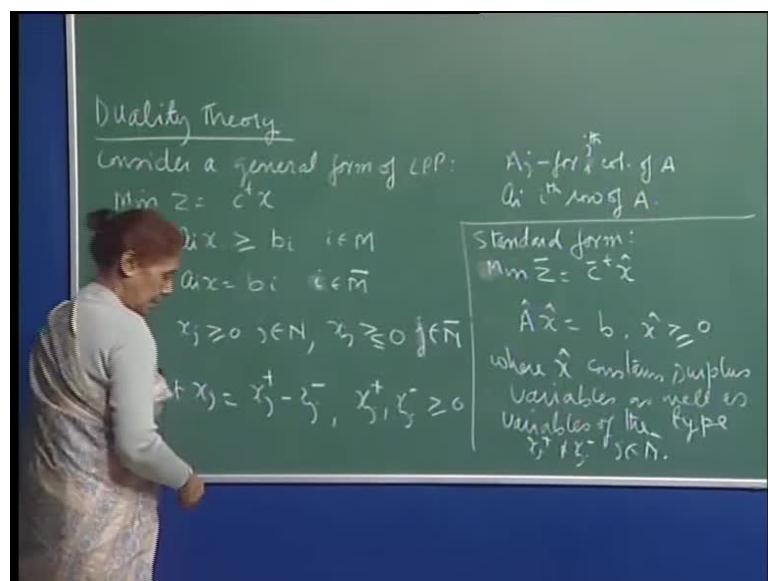 Duality Theory
Consider a general form of LPP:
Min Z = cᵗx
aix ≥ bi i ∈ M
aix = bi i ∈ M̄
xj ≥ 0 j ∈ N, xj ≷ 0 j ∈ N̄
xj = xj⁺ - xj⁻, xj⁺, xj⁻ ≥ 0
Aj - for jth col. of A
ai ith row of A.
Standard form:
Min Z̄ = c̄ᵗx̂
Âx̂ = b, x̂ ≥ 0
where x̂ contains surplus
variables as well as
variables of the type
xj⁺ & xj⁻ j ∈ N̄.